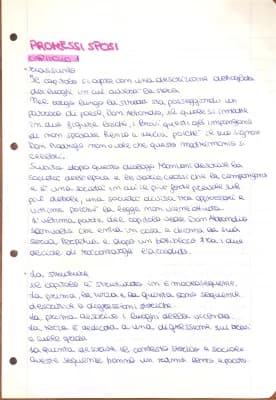 PROMESSI SPOSI
CAPITOLO 1
• Riassunto
Il capitolo si apre con una descrizione dettagliata
dei luoghi in cui avverrà la storia
Nel borgo lungo la strada sta passeggiando un
parroco di paese, Don Abbondio, il quale si imbatte
in due figure losche, i bravi questi gli impongono
di non sposare Renzo e Lucia, poiché il suo signore
Don Rodrigo non vuole che questo matrimonio si
celebri.
Subito dopo questo dialogo Manzoni descrive la
società dell'epoca e le classi sociali che la compongono
e è una società in cui il più forte prevale sul
più debole, una società divisa tra oppressori e
vittime poiché la legge non viene attuata
L'ultima parte del capitolo vede Don Abbondio
che entra in casa e chiama la sua
serva, Perpetua e dopo un battibecco tra i due
decide di raccontargli l'accaduto.
• La struttura
Il capitolo è strutturato in 5 macrosequenze.
La prima, la terza e la quinta sono sequenze
descrittive e digressioni storiche
La prima descrive i luoghi della vicenda.
La terza è dedicata a una digressione sui bravi
e sulle grida
La quinta descrive il contesto storico e sociale
queste sequenze hanno un ritmo lento e pacato.